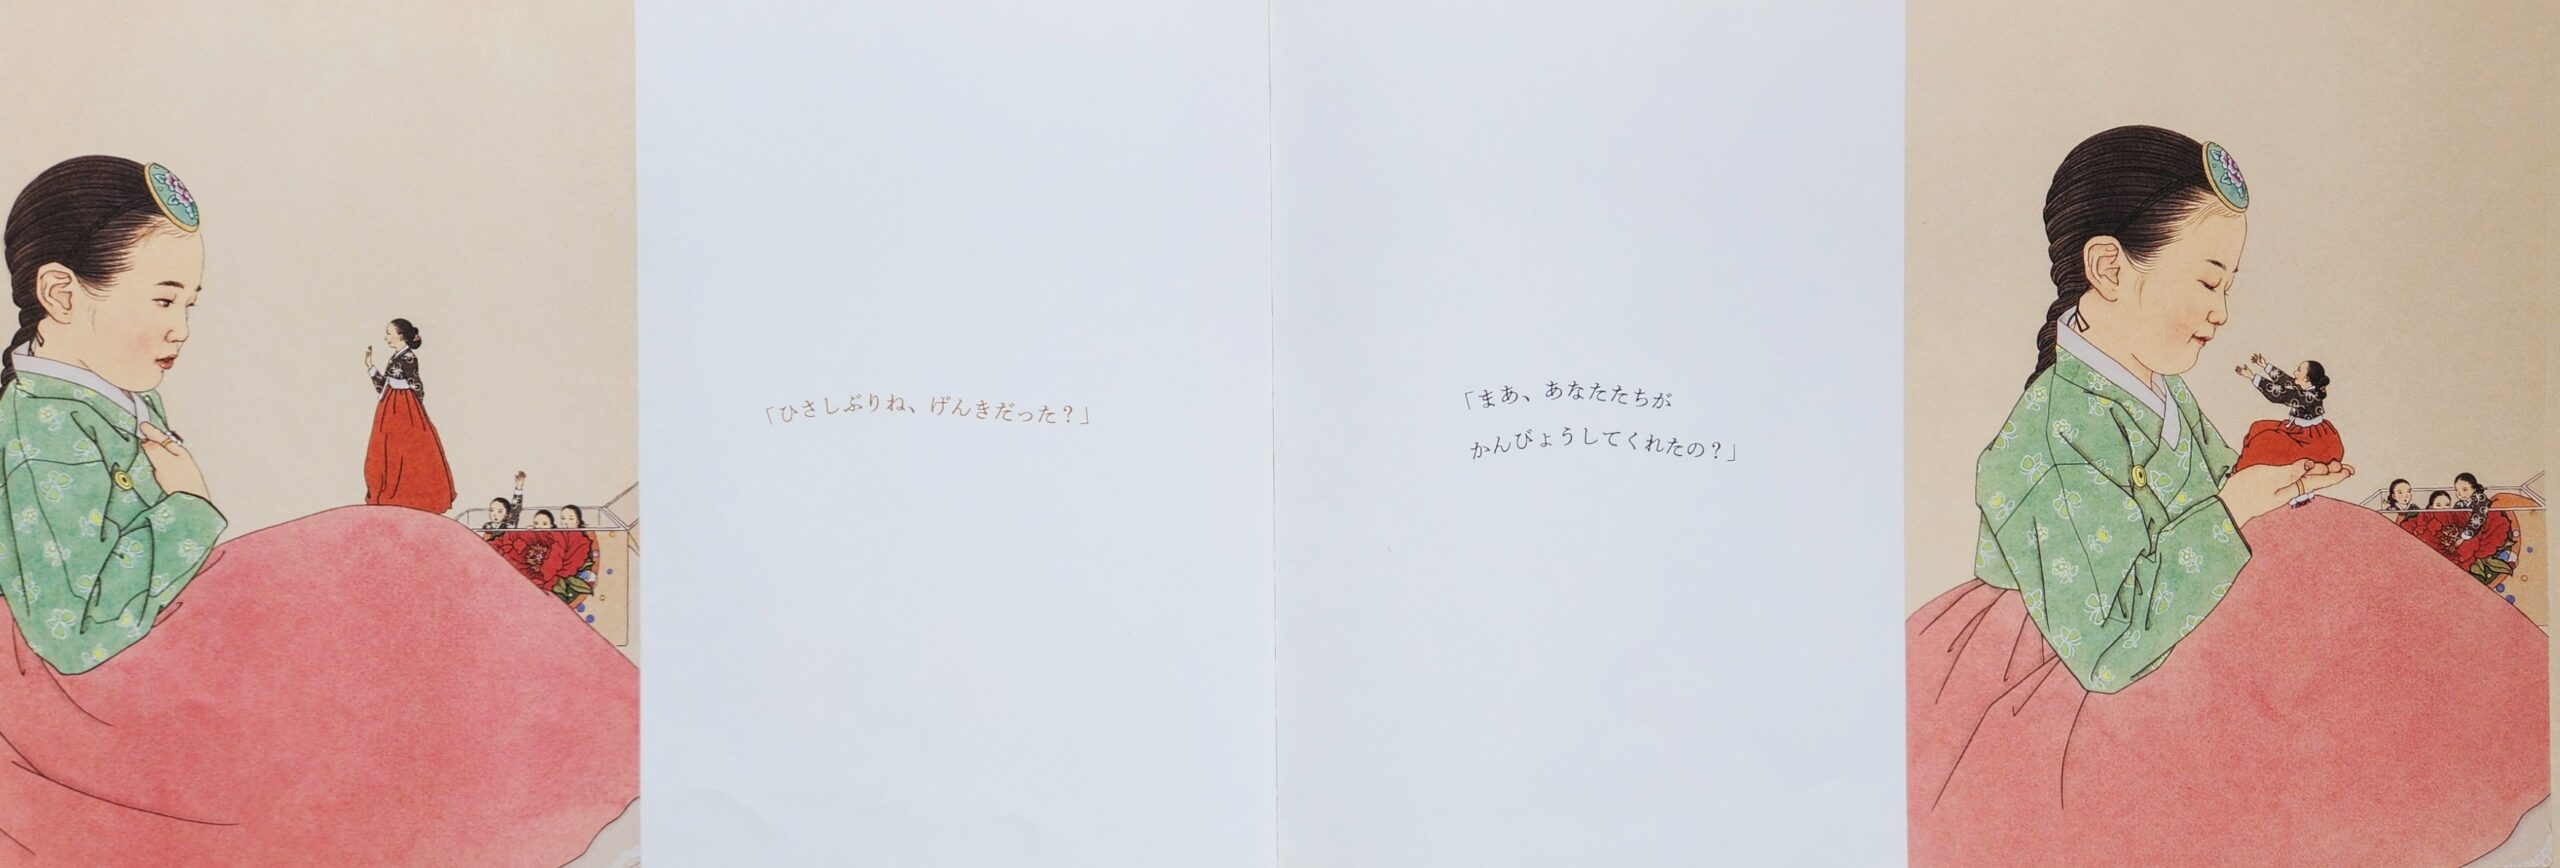 「ひさしぶりね、げんきだった？」
「まあ、あなたたちが
かんびょうしてくれたの？」